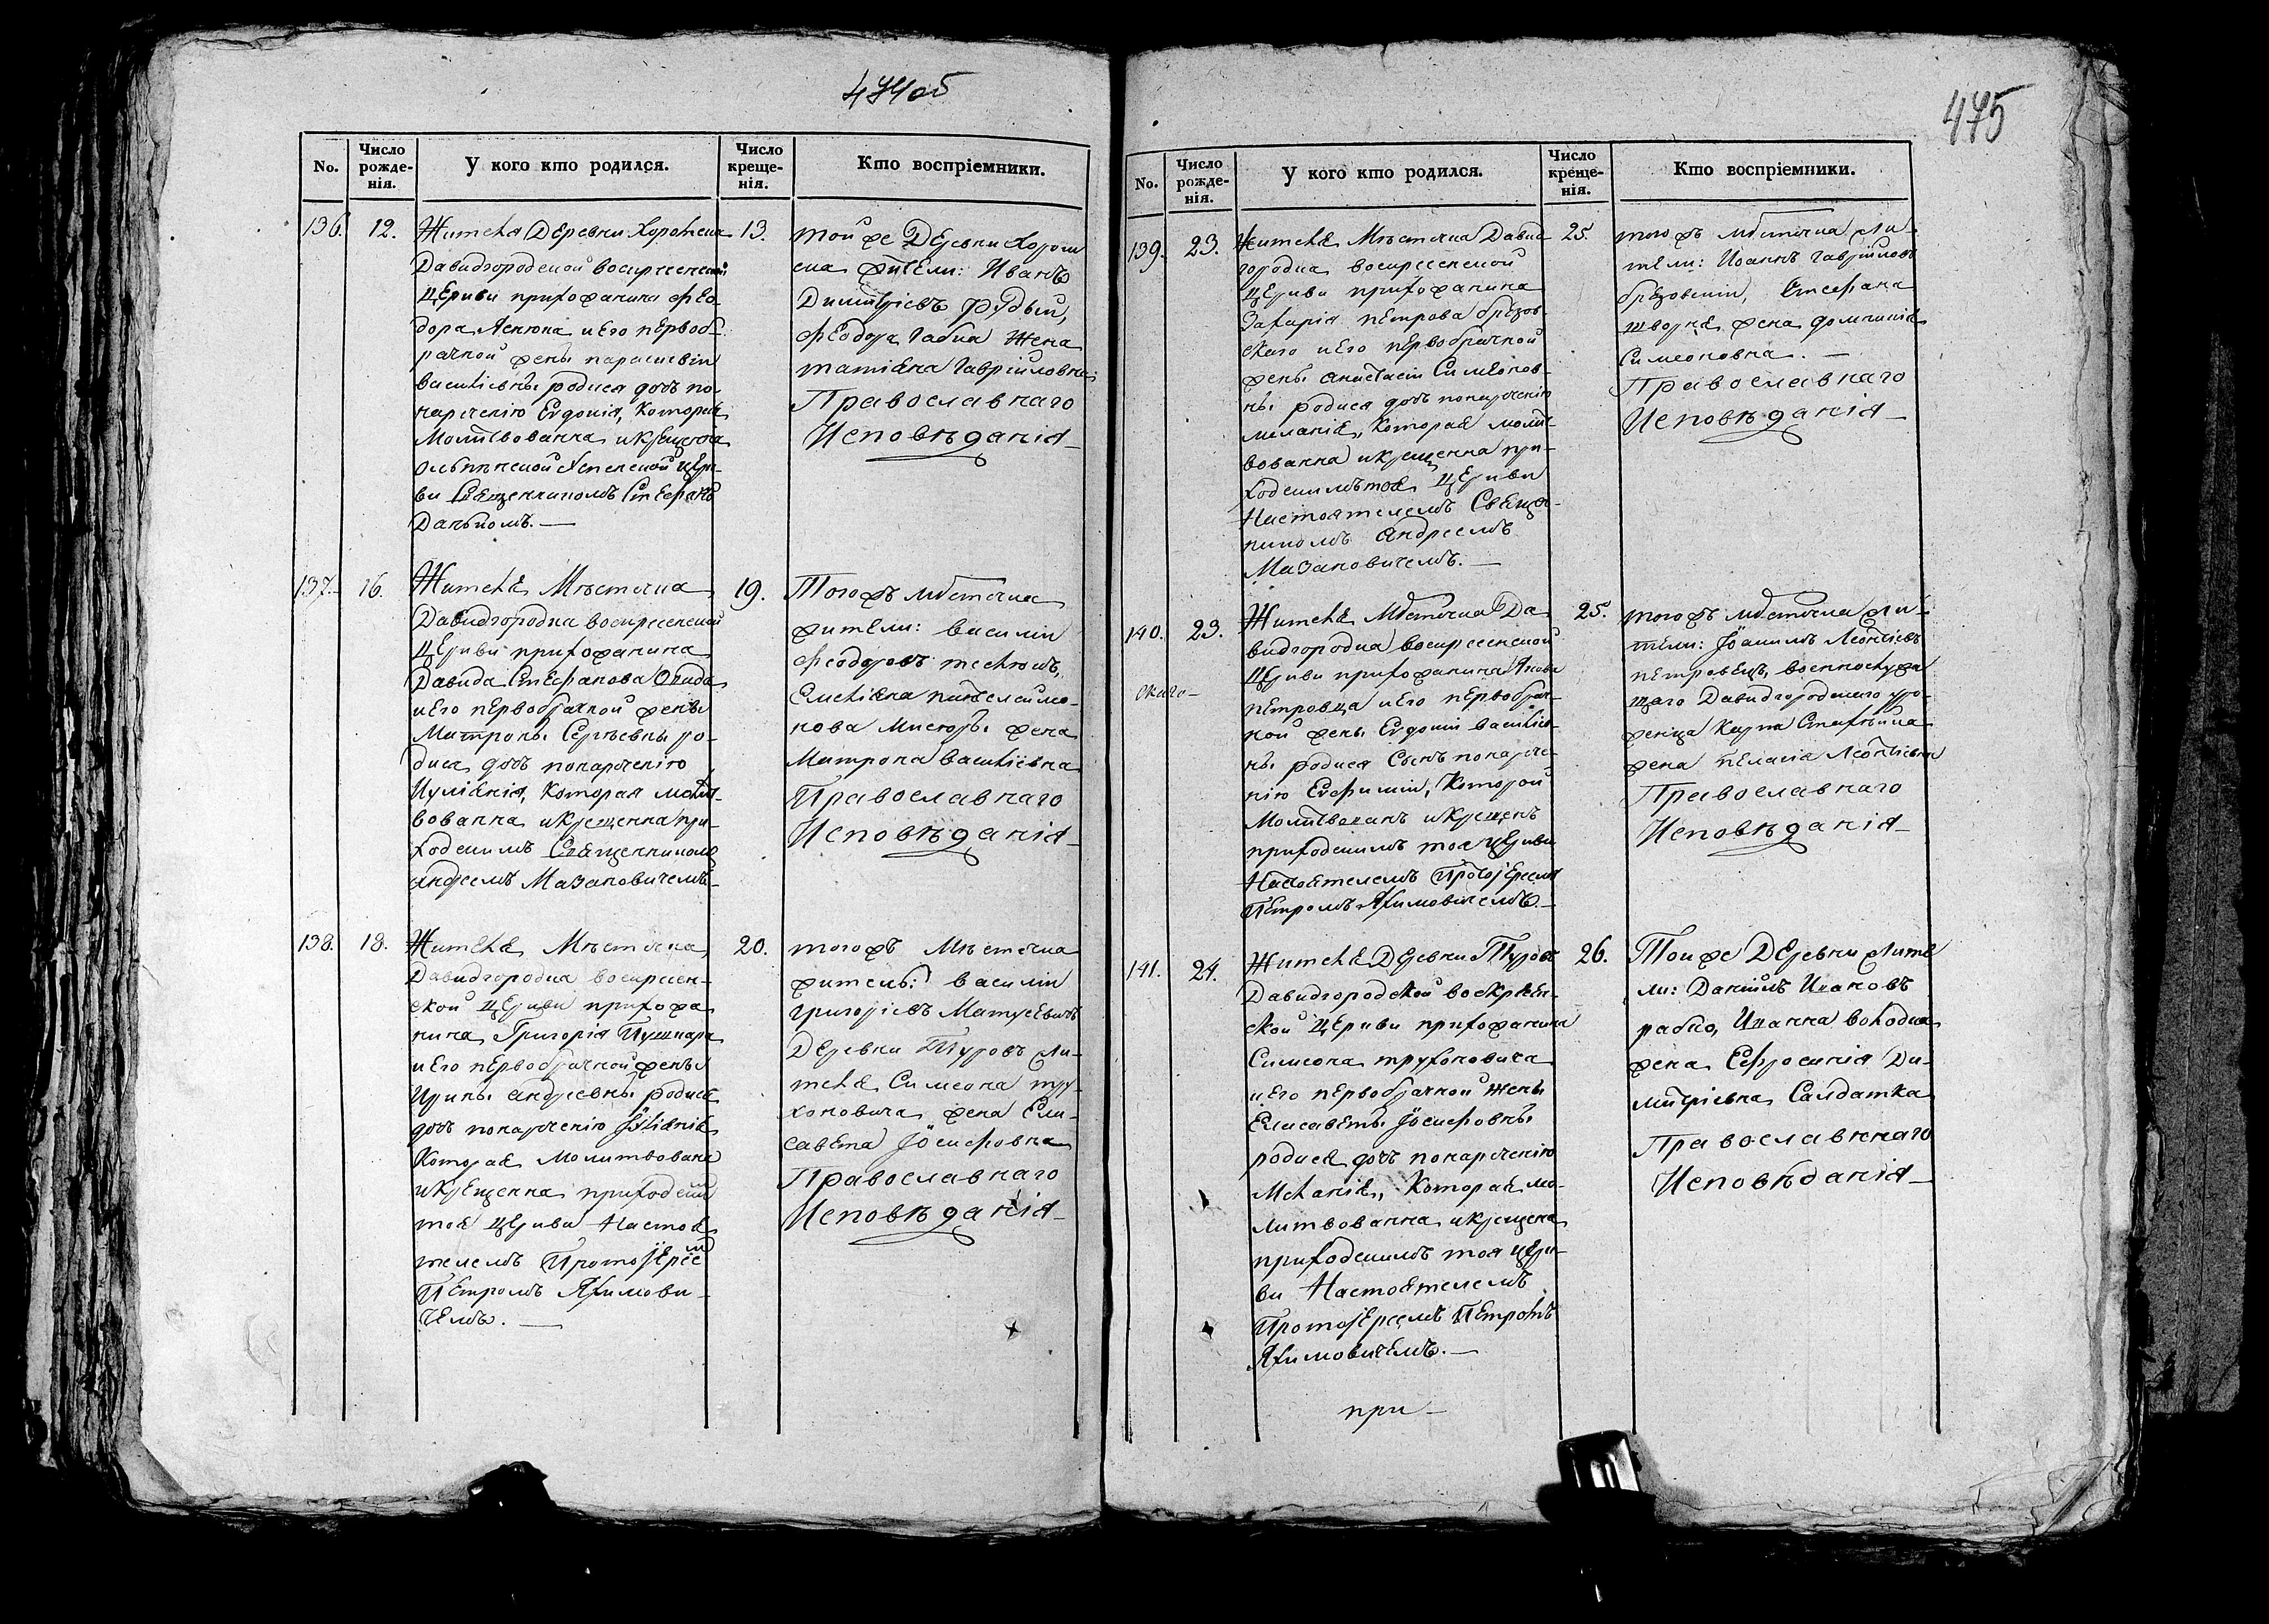 474об
No.
Число рожде-нія.
У кого кто родился.
Число креще-нія.
Кто воспріемники.
136. 12.
Жителя Деревни Хоромска
Давидгородской воскресенской
Церкви прихожанина Фео
дора и его первоб-
рачной жены параскевіи
васильевны родися дочь по
наречению Евдокія, Которая
Молитвованна и крещенна
Церк-
ви Священникомъ Стефаномъ
13.
той же Деревни Хором
ска жители: Иванъ
Димитріевъ Рудый,
Феодора Габца Жена
татіяна Гавріиловна;
Православнаго
Исповѣданія
137. 16.
Жителя Мѣстечка
Давидгородка воскресенской
Церкви прихожанина
Давида Стефанова
и его первобрачной жены
Матроны Сергѣевны ро-
дися дочь понареченію
Иуліанія, Которая молит-
вованна и крещенна при-
ходскимъ Священникомъ
андреемъ Мазановичемъ
19.
Тогожъ мѣстечка
жители: василій
Феодоровъ
жена
Матрона васильевна
Православнаго
Исповѣданія
138. 18.
Жителя Мѣстечка
Давидгородка воскресен-
ской Церкви прихожа
нина Григорія Пушкаря
и его первобрачной жены
Ирины андреевны родися
дочь понареченію Іуліанія
Которая Молитвована
и крещенна приходским
тоя Церкви Настоя
телемъ Протоіерее
Петромъ Яхимови-
чемъ.
20.
тогожъ Мѣстечка
житель: василій
григоріевъ Матусевичъ
Деревни Туровъ жи-
теля Симеона тру-
хоновича жена Ели-
савета Іосифовна
Православнаго
Исповѣданія
475
No.
Число рожде-нія.
У кого кто родился.
Число креще-нія.
Кто воспріемники.
139. 23.
Жителя Мѣстечка Давид
городка воскресенской
Церкви прихожанина
Захарія петрова брезов-
скаго и его первобрачной
жены анастасіи Симеонов-
ны родися дочь понареченію
меланія, Которая молит-
вованна и крещенна при-
ходскимъ тоя Церкви
Настоятелемъ Священ-
никомъ андреемъ
Мазановичемъ.
25.
тогожъ мѣстечка жи-
тели: Иоаннъ гавріиловъ
брезовскій, Стефана
жена домникія
Симеоновна.
Православнаго
Исповѣданія
140. 23.
Жителя Мѣстечка Да
видгородка воскресенской
Церкви прихожанина Якова
петровца и его первобрач-
ной жены Евдокіи васильев-
ны родися Сынъ понарече-
нію Евфимій, Которой
Молитвованъ и крещенъ
приходскимъ тоя Церкви
Настоятелемъ Протоіереемъ
Петромъ Яхимовичемъ.
25.
тогожъ мѣстечка жи-
тели: Іоакимъ Леонтіевъ
петровецъ, военнослужа
щаго Давидгородскаго уро-
женца Карпа
жена пелагія Леонтіевна
Православнаго
Исповѣданія
141. 24.
Жителя Деревни Туровъ
Давидгородской воскресен-
ской Церкви прихожанина
Симеона трухоновича
и его первобрачной жены
Елисаветы Іосифовны
родися дочь понареченію
Меланія, Которая мо-
литвованна и крещена
приходскимъ тоя церк-
ви Настоятелемъ
Протоіереемъ Петромъ
Яхимовичемъ.
при-
26.
Тойже Деревни жите
ли: Даніилъ Ивановъ
рабко, Иванна володка
жена Ефросинія Ди-
митріевна Салдатка
Православннаго
Исповѣданія